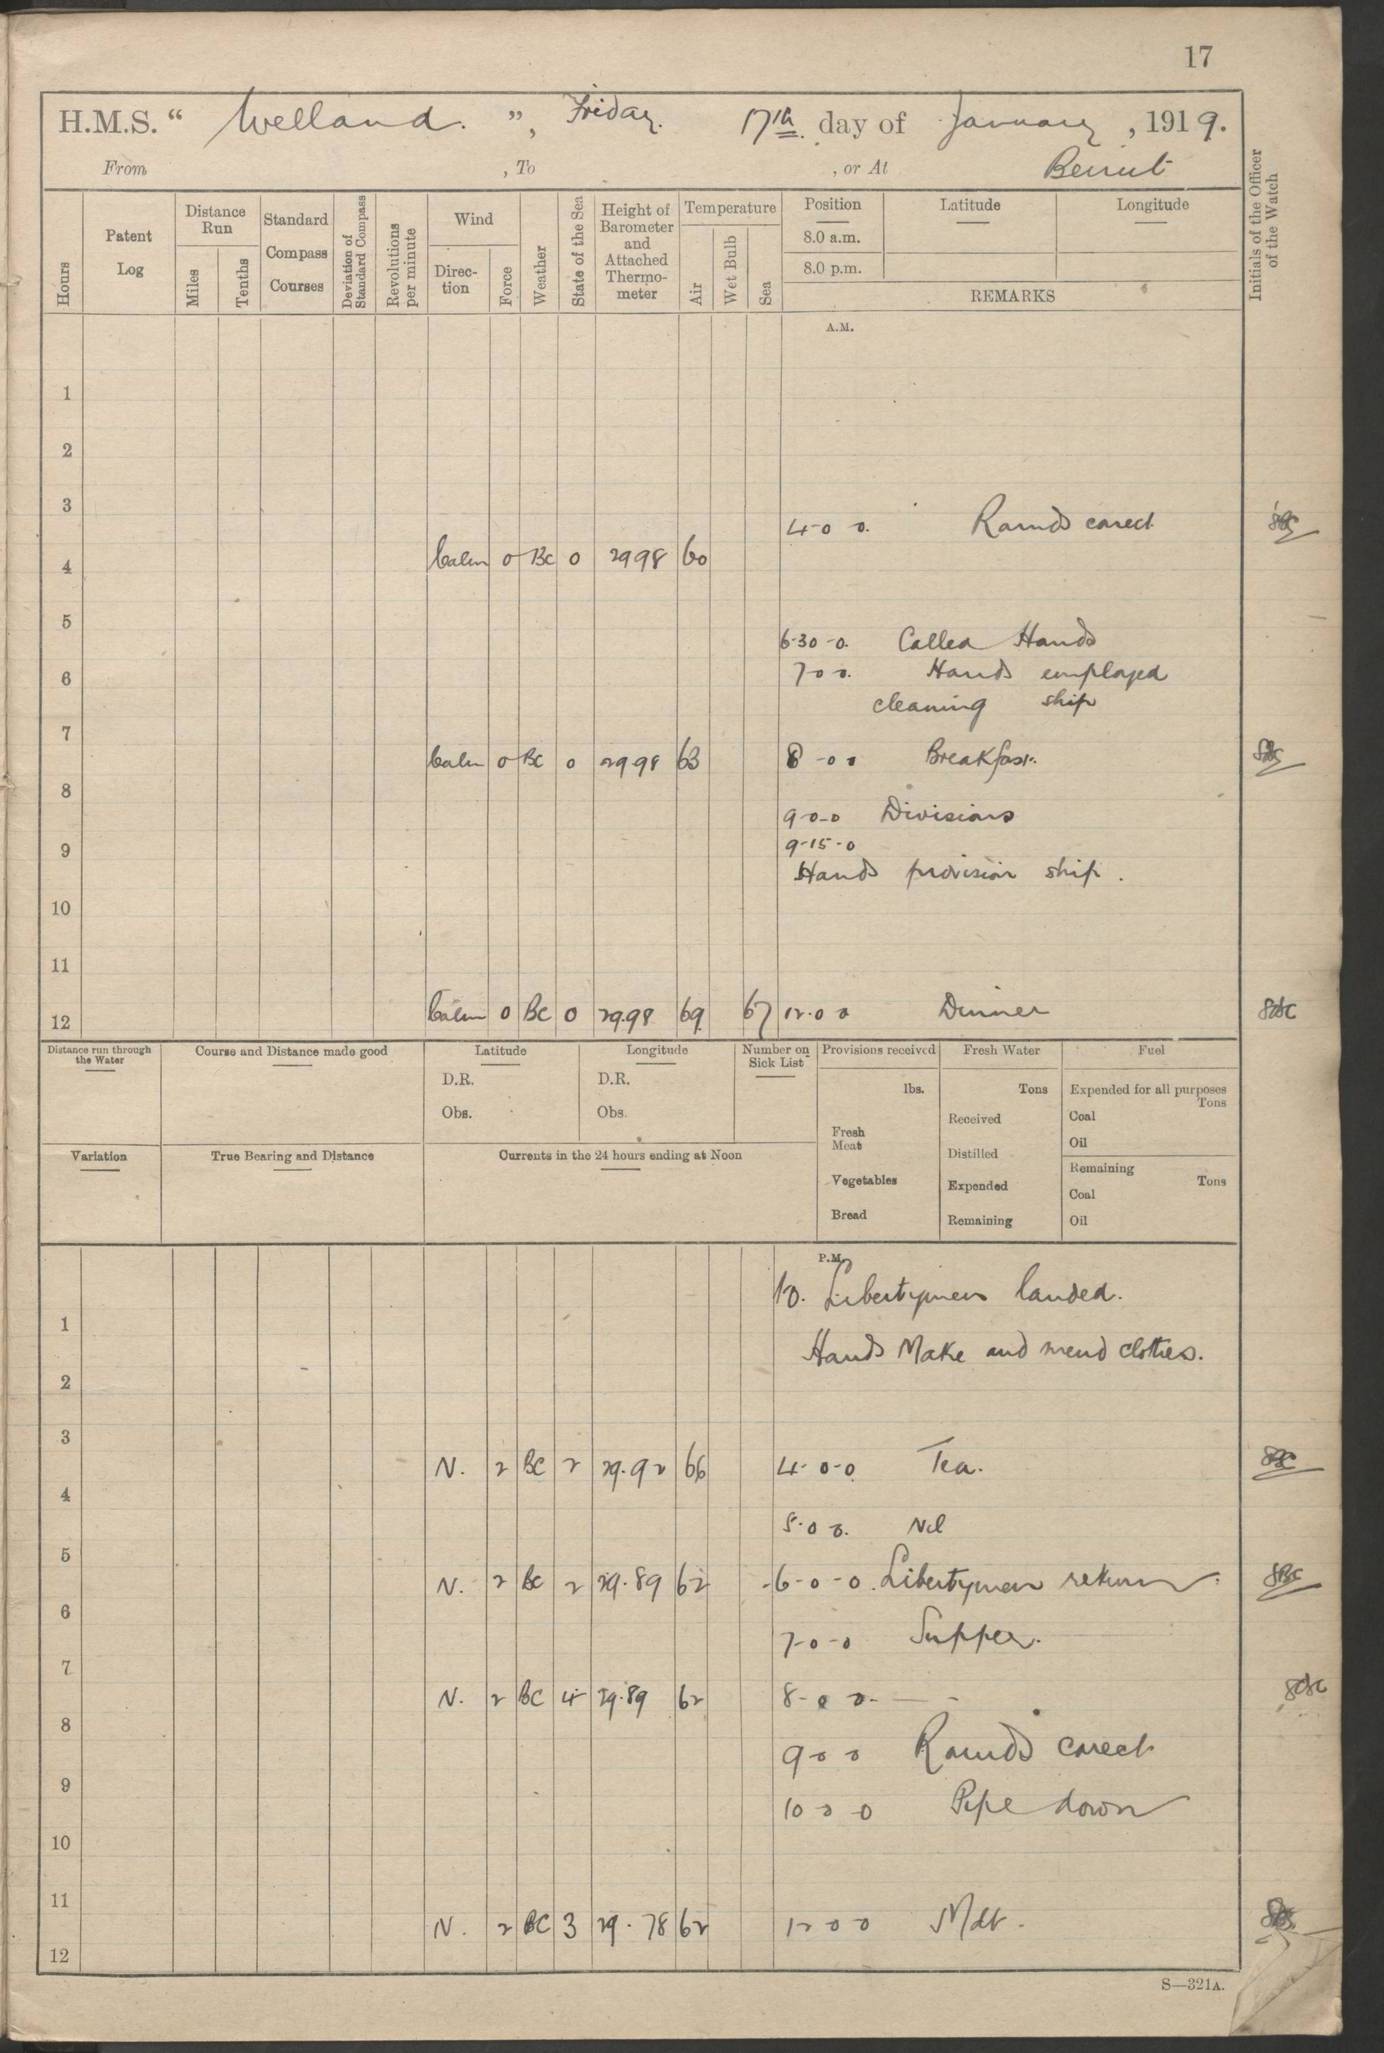 17
H.M.S. “ Welland. ”, Friday. 17th. day of January, 1919.
From , To , or At Beirut
Initials of the Officer of the Watch
Hours
Patent Log
Distance Run
Miles
Tenths
Standard Compass Courses
Deviation of Standard Compass
Revolutions per minute
Wind
Direc-tion
Force
Weather
State of the Sea
Height of Barometer and Attached Thermo-meter
Temperature
Air
Wet Bulb
Sea
Position Latitude Longitude
8.0 a.m.
8.0 p.m.
REMARKS
A.M.
1
2
3
4-0 0. Rounds corect
4 Calm 0 BC 0 2998 60
5
6-30-0. Called Hands
6 7-0 0. Hands employed
cleaning ship
7
Calm 0 BC 0 2998 63 8-0 0 Breakfast.
8
9-0-0 Divisions
9 9-15-0
Hands provision ship.
10
11
12 Calm 0 BC 0 29.98 69 67 12.0 0 Dinner
Distance run through the Water
Course and Distance made good
Latitude
D.R.
Obs.
Longitude
D.R.
Obs.
Number on Sick List
Provisions received
lbs.
Fresh Meat
Vegetables
Bread
Fresh Water
Tons
Received
Distilled
Expended
Remaining
Fuel
Expended for all purposes
Tons
Coal
Oil
Remaining
Tons
Coal
Oil
Variation
True Bearing and Distance
Currents in the 24 hours ending at Noon
P.M.
1.0. Libertymen landed.
1
Hands Make and mend clothes.
2
3
N. 2 BC 2 29.92 66 4-0-0 Tea.
4
5.0 0. Nil
5
N. 2 BC 2 29.89 62 6-0-0. Libertymen return
6
7-0-0 Supper.
7
N. 2 BC 4 29.89 62 8-0 0. — -
8
9-0 0 Rounds corect
9
10 0 0 Pipe down
10
11
N. 2 BC 3 29.78 62 12 0 0 Mdt.
12
S—321A.